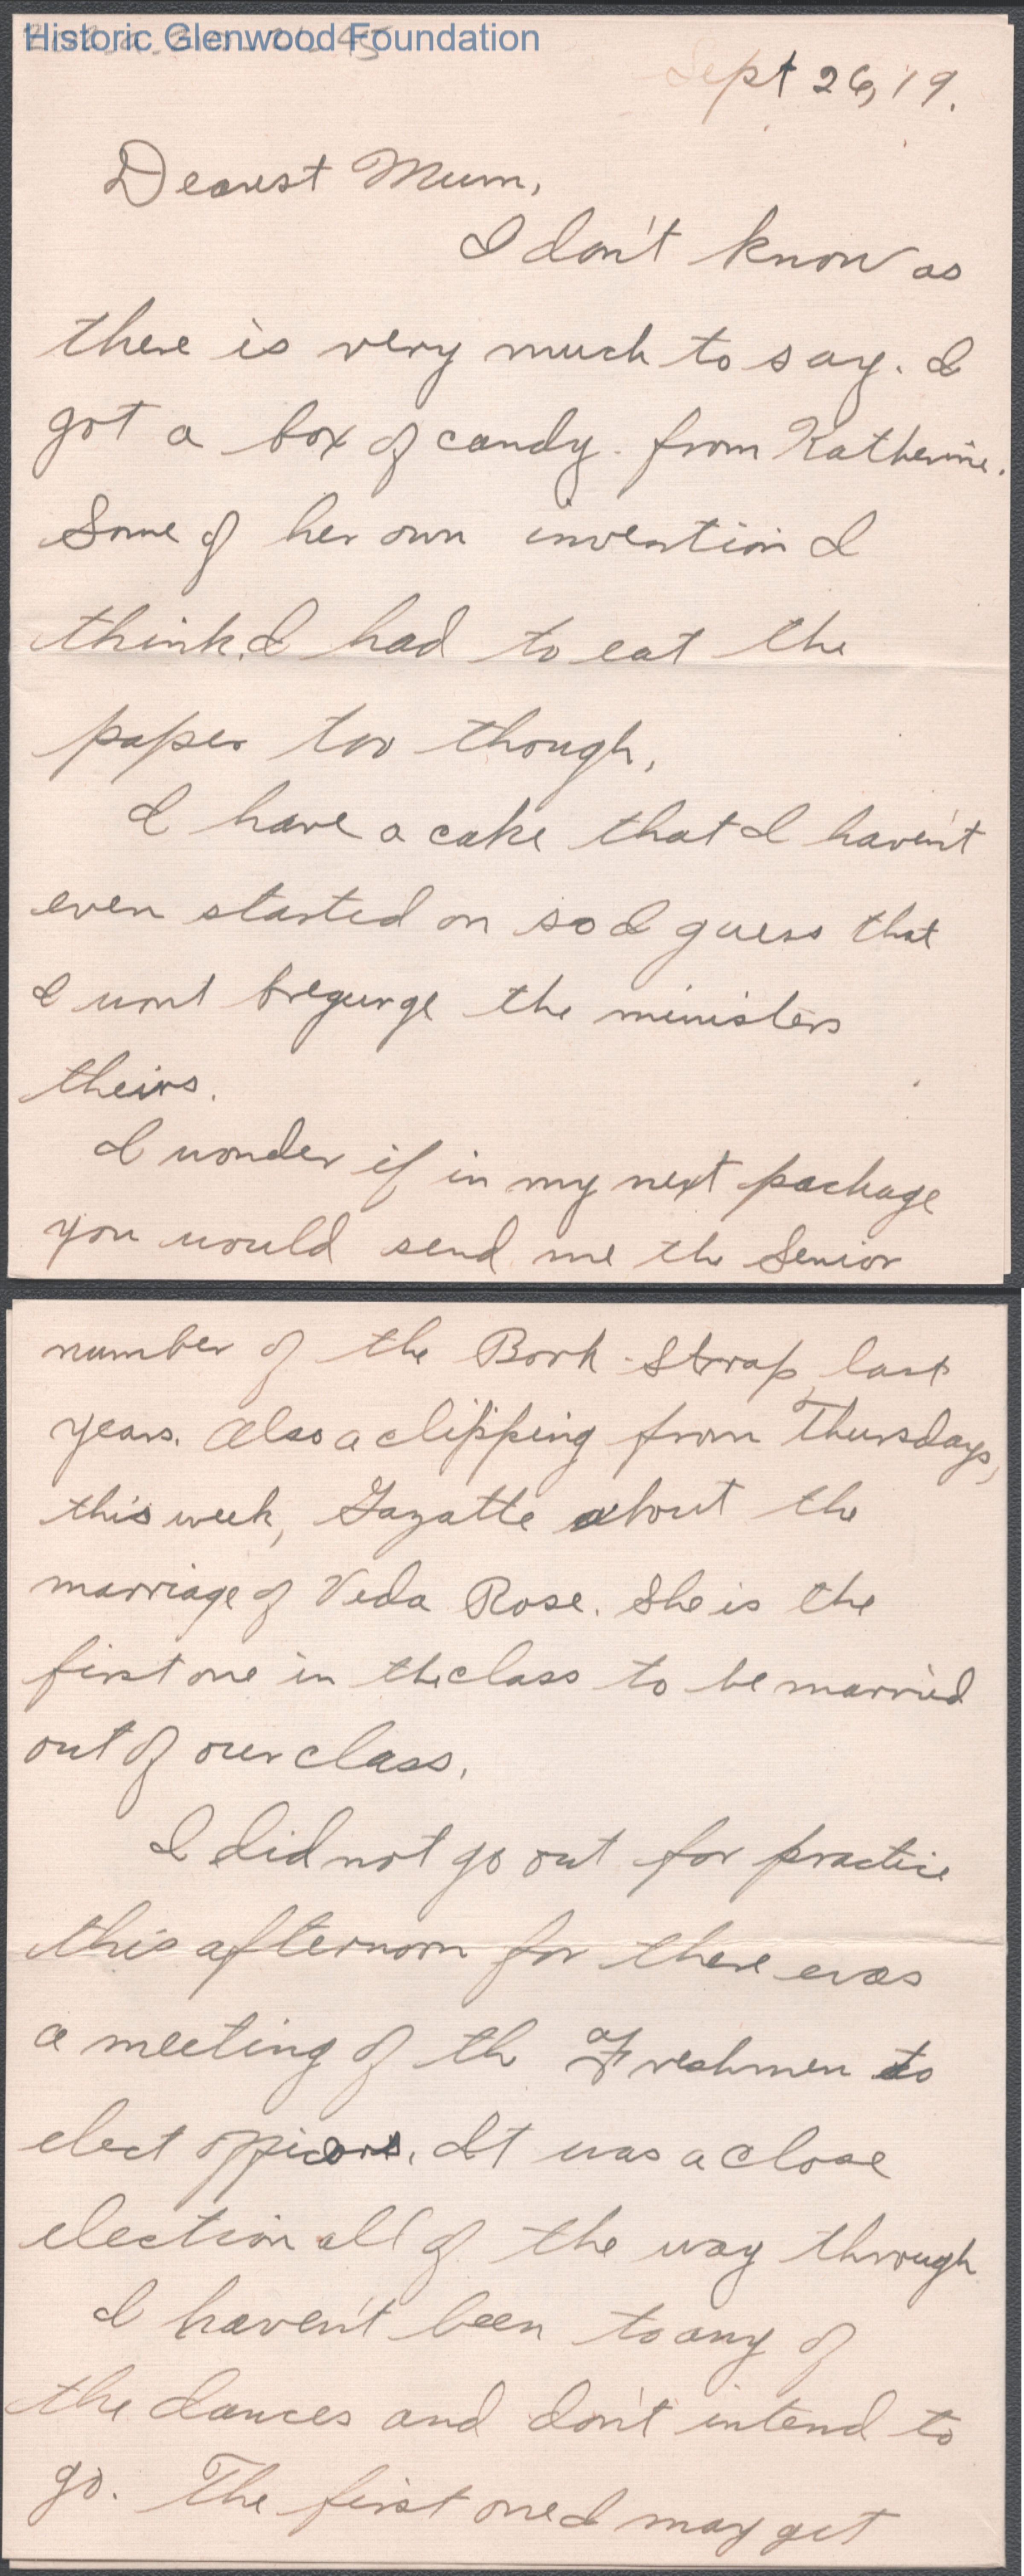 Historic Glenwood Foundation
Sept 26, 19.
Dearest Mum,
I don't know as
there is very much to say. I
got a box of candy. from Katherine.
Some of her own invention I
think. I had to eat the
paper too though.
I have a cake that I haven't
even started on so I guess that
I wont bregurge the ministers
theirs.
I wonder if in my next package
you would send me the Senior
number of the Book-Strap last
years. Also a clipping from Thursdays,
this week, Gazatte about the
marriage of Veda Rose. She is the
first one in the class to be married
out of our class.
I did not go out for practice
this afternoon for there was
a meeting of the Freshmen to
elect officers. It was a close
election all of the way through
I haven't been to any of
the dances and don't intend to
go. The first one I may get